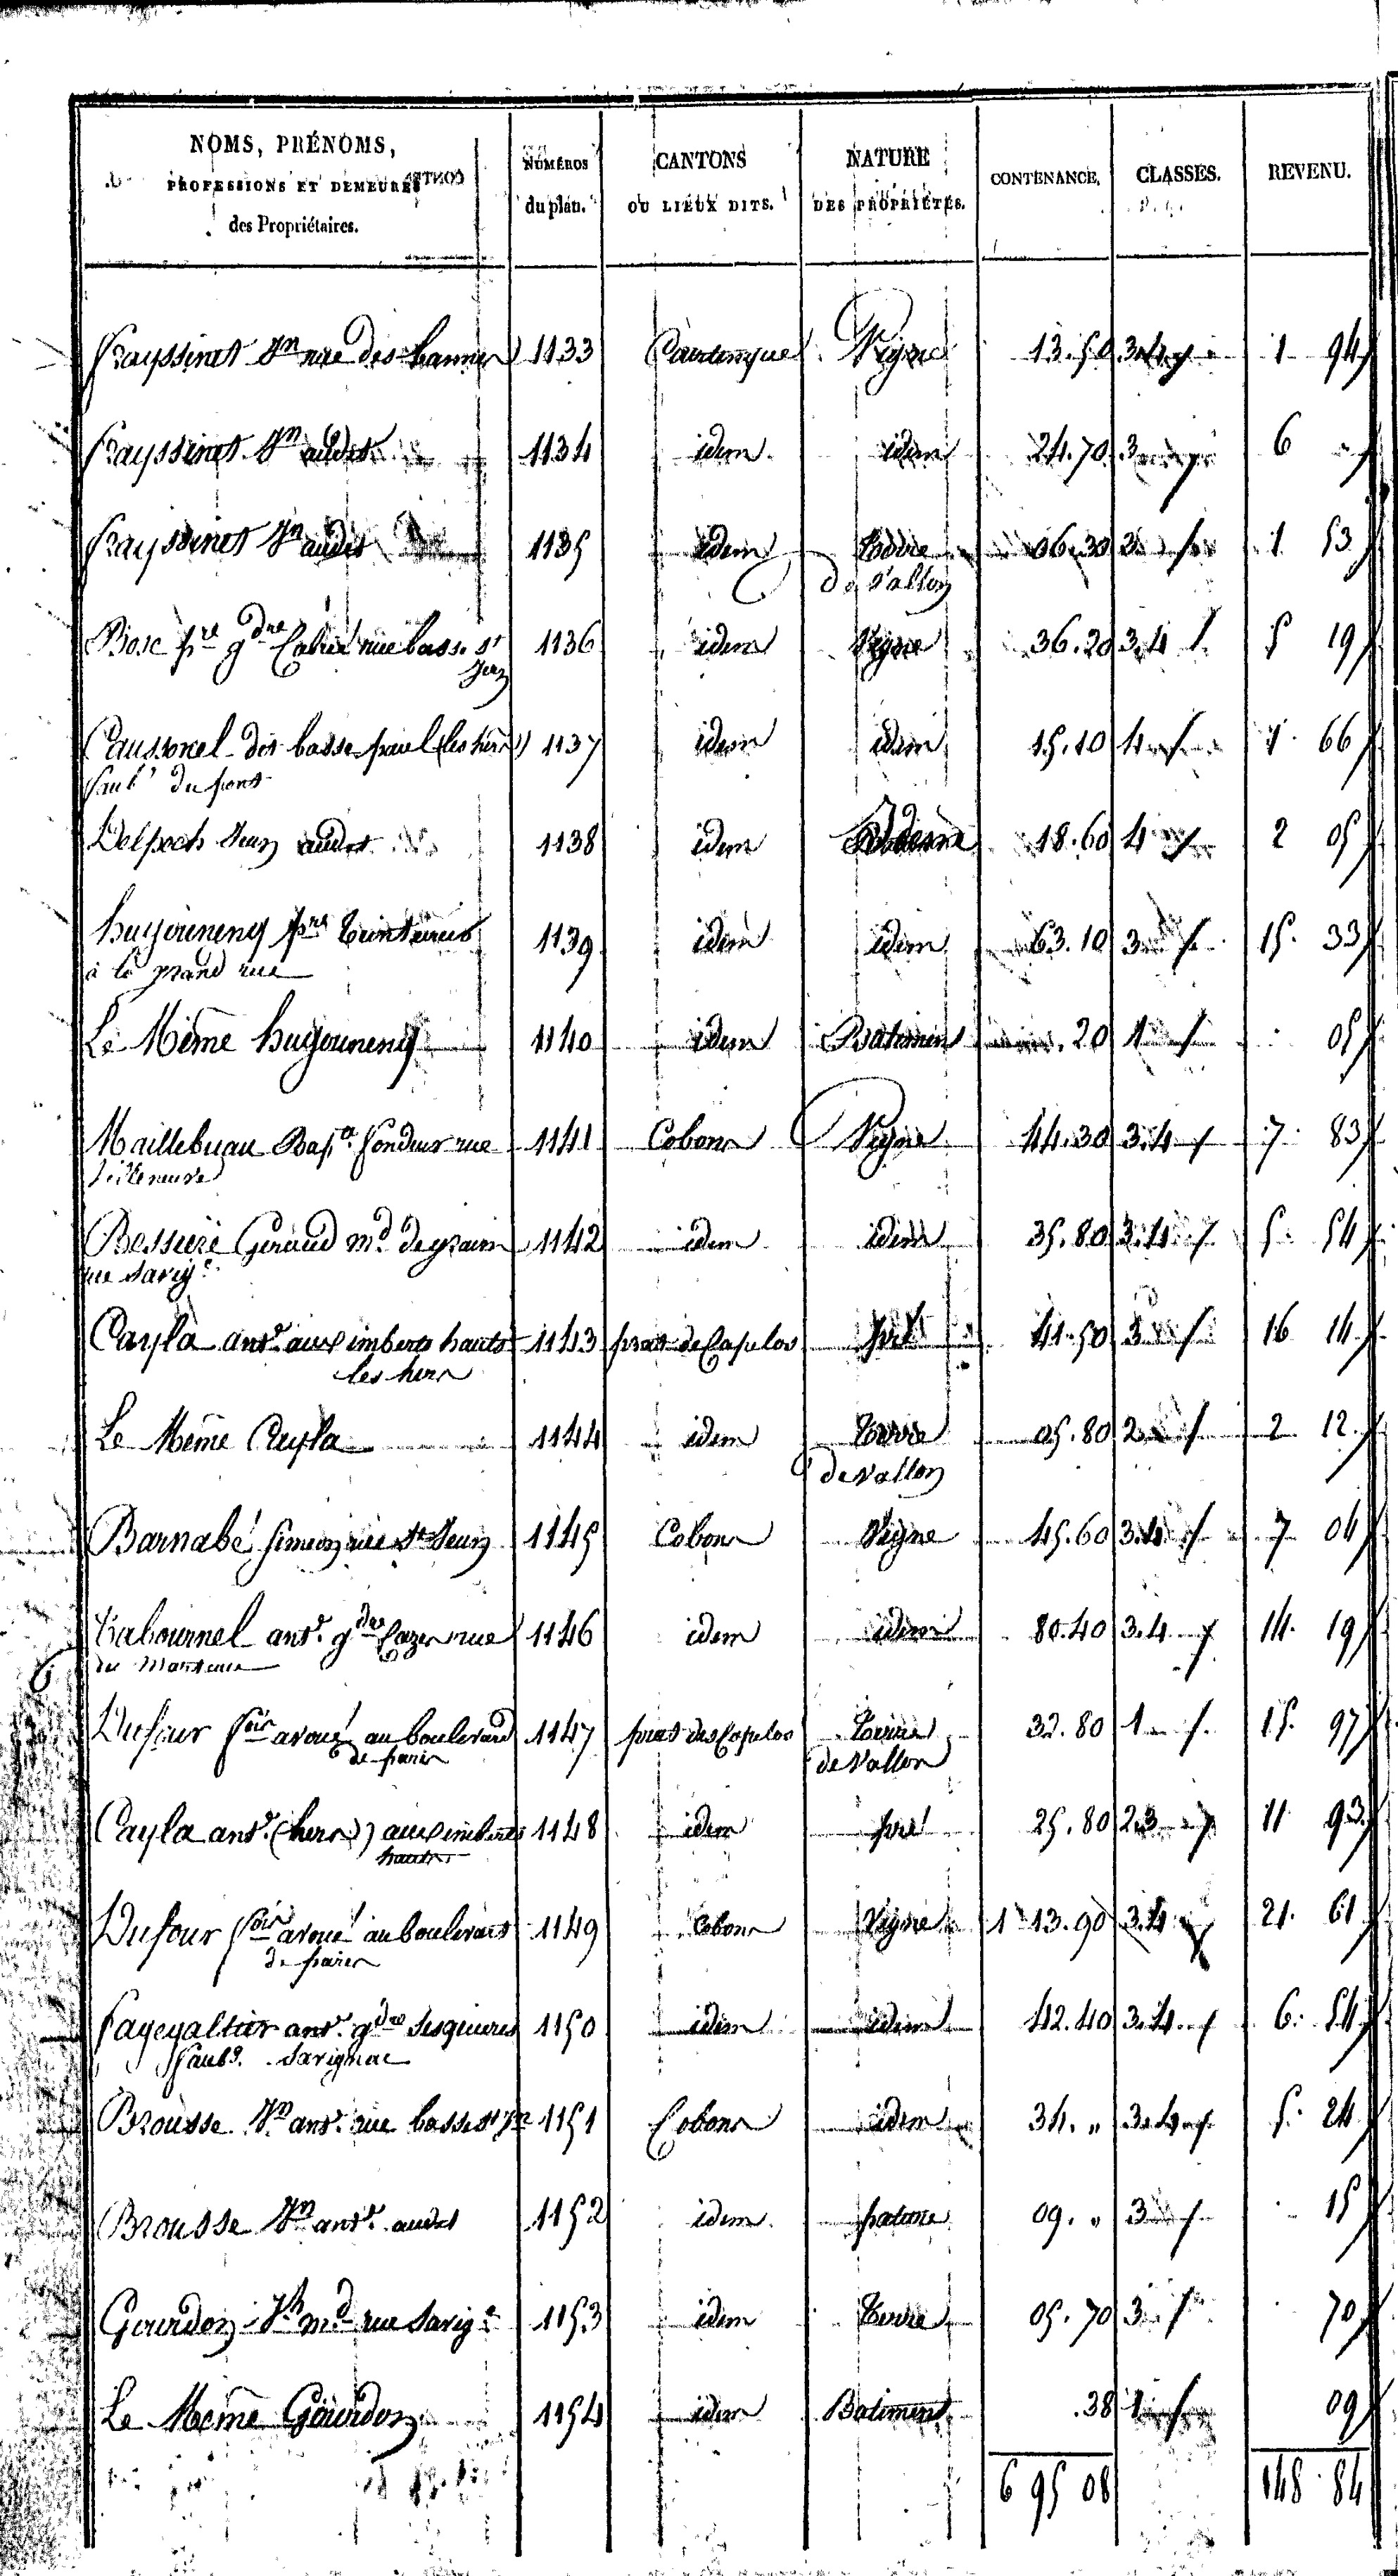 NOMS, PRÉNOMS,
PROFESSIONS ET DEMEURES
des Propriétaires.
NUMÉROS
du plan.
CANTONS
OU LIEUX DITS.
NATURE
DES PROPRIÉTÉS.
CONTENANCE.
CLASSES.
REVENU.
Frayssinet Jn rue des 1133 Vigne 13.50 3.4 1 94
Frayssinet Jn audit 1134 idem idem 24.70 3 6 "
Frayssinet Jn audit 1135 idem Terre 06.30 3 1 53
de Vallon
Bosc pre gdre Cabrié rue basse St 1136 idem Vigne 36.20 3.4 5 19
Jean
Caussonel dit basse paul (les hers) 1137 idem idem 15.10 4 1 66
faubg du pont
Delpech Jean audit 1138 idem Idem 18.60 4 2 05
huyouneng pre teinturier 1139 idem idem 63.10 3 15. 33
à la grand rue
Le Même huyouneng 1140 idem Batiment .20 1 05
Maillebuau Bapte fondeur rue 1141 Cobon Vigne 44.30 3.4 7 83
Villeneuve
Bessiere Géraud md de grain 1142 idem idem 35.80 3.4 5 54
rue Savigc
Cayla ante aux imberts hauts 1143 prat de Capelos pré 41.50 3 16 14
les hers
Le Même Cayla 1144 idem Terre 05.80 2 2 12
de Vallon
Barnabé Simeon rue St Jean 1145 Cobon Vigne 45.60 3.4 7 04
Cabournel ante gdre Cazes rue 1146 idem idem 80.40 3.4 14. 19
du
Dufour fois avoué au boulevard 1147 prat des Capelos Terre 32.80 1 15. 97
de paris de Vallon
Cayla ante (hers) aux imberts 1148 idem pré 25.80 2.3 11 93
hauts
Dufour fois avoué au boulevard 1149 Cobon Vigne 1 13.90 3.4 21. 61
de paris
Fagegaltier ante gdre Sesquieres 1150 idem idem 42.40 3.4 6. 54
faubg. Savignac
Brousse Jn ante rue basse St Jn 1151 Cobon idem 34. " 3.4 5. 24
Brousse Jn ante audit 1152 idem pature 09. " 3 15
Gourdon Jh md rue Savigc 1153 idem Terre 05.70 3 70
Le Même Gourdon 1154 idem Batiment .38 1 09
6 95 08 148 84